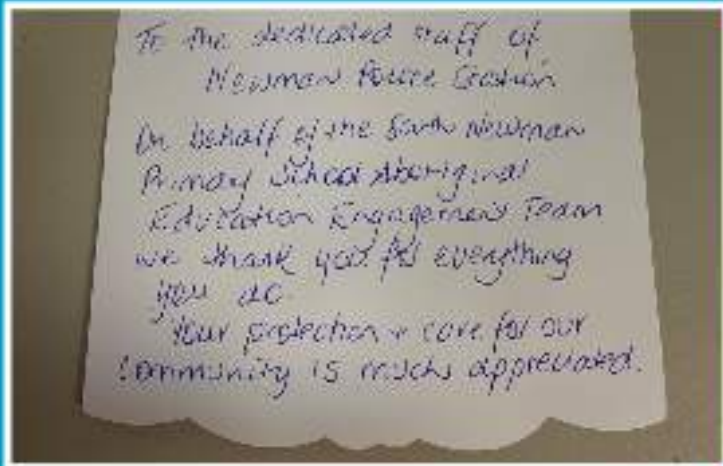 To the dedicated staff of
Newman Police Station
On behalf of the South Newman
Primary School Aboriginal
Education Engagement Team
we thank you for everything
you do.
Your protection + care for our
community is much appreciated.